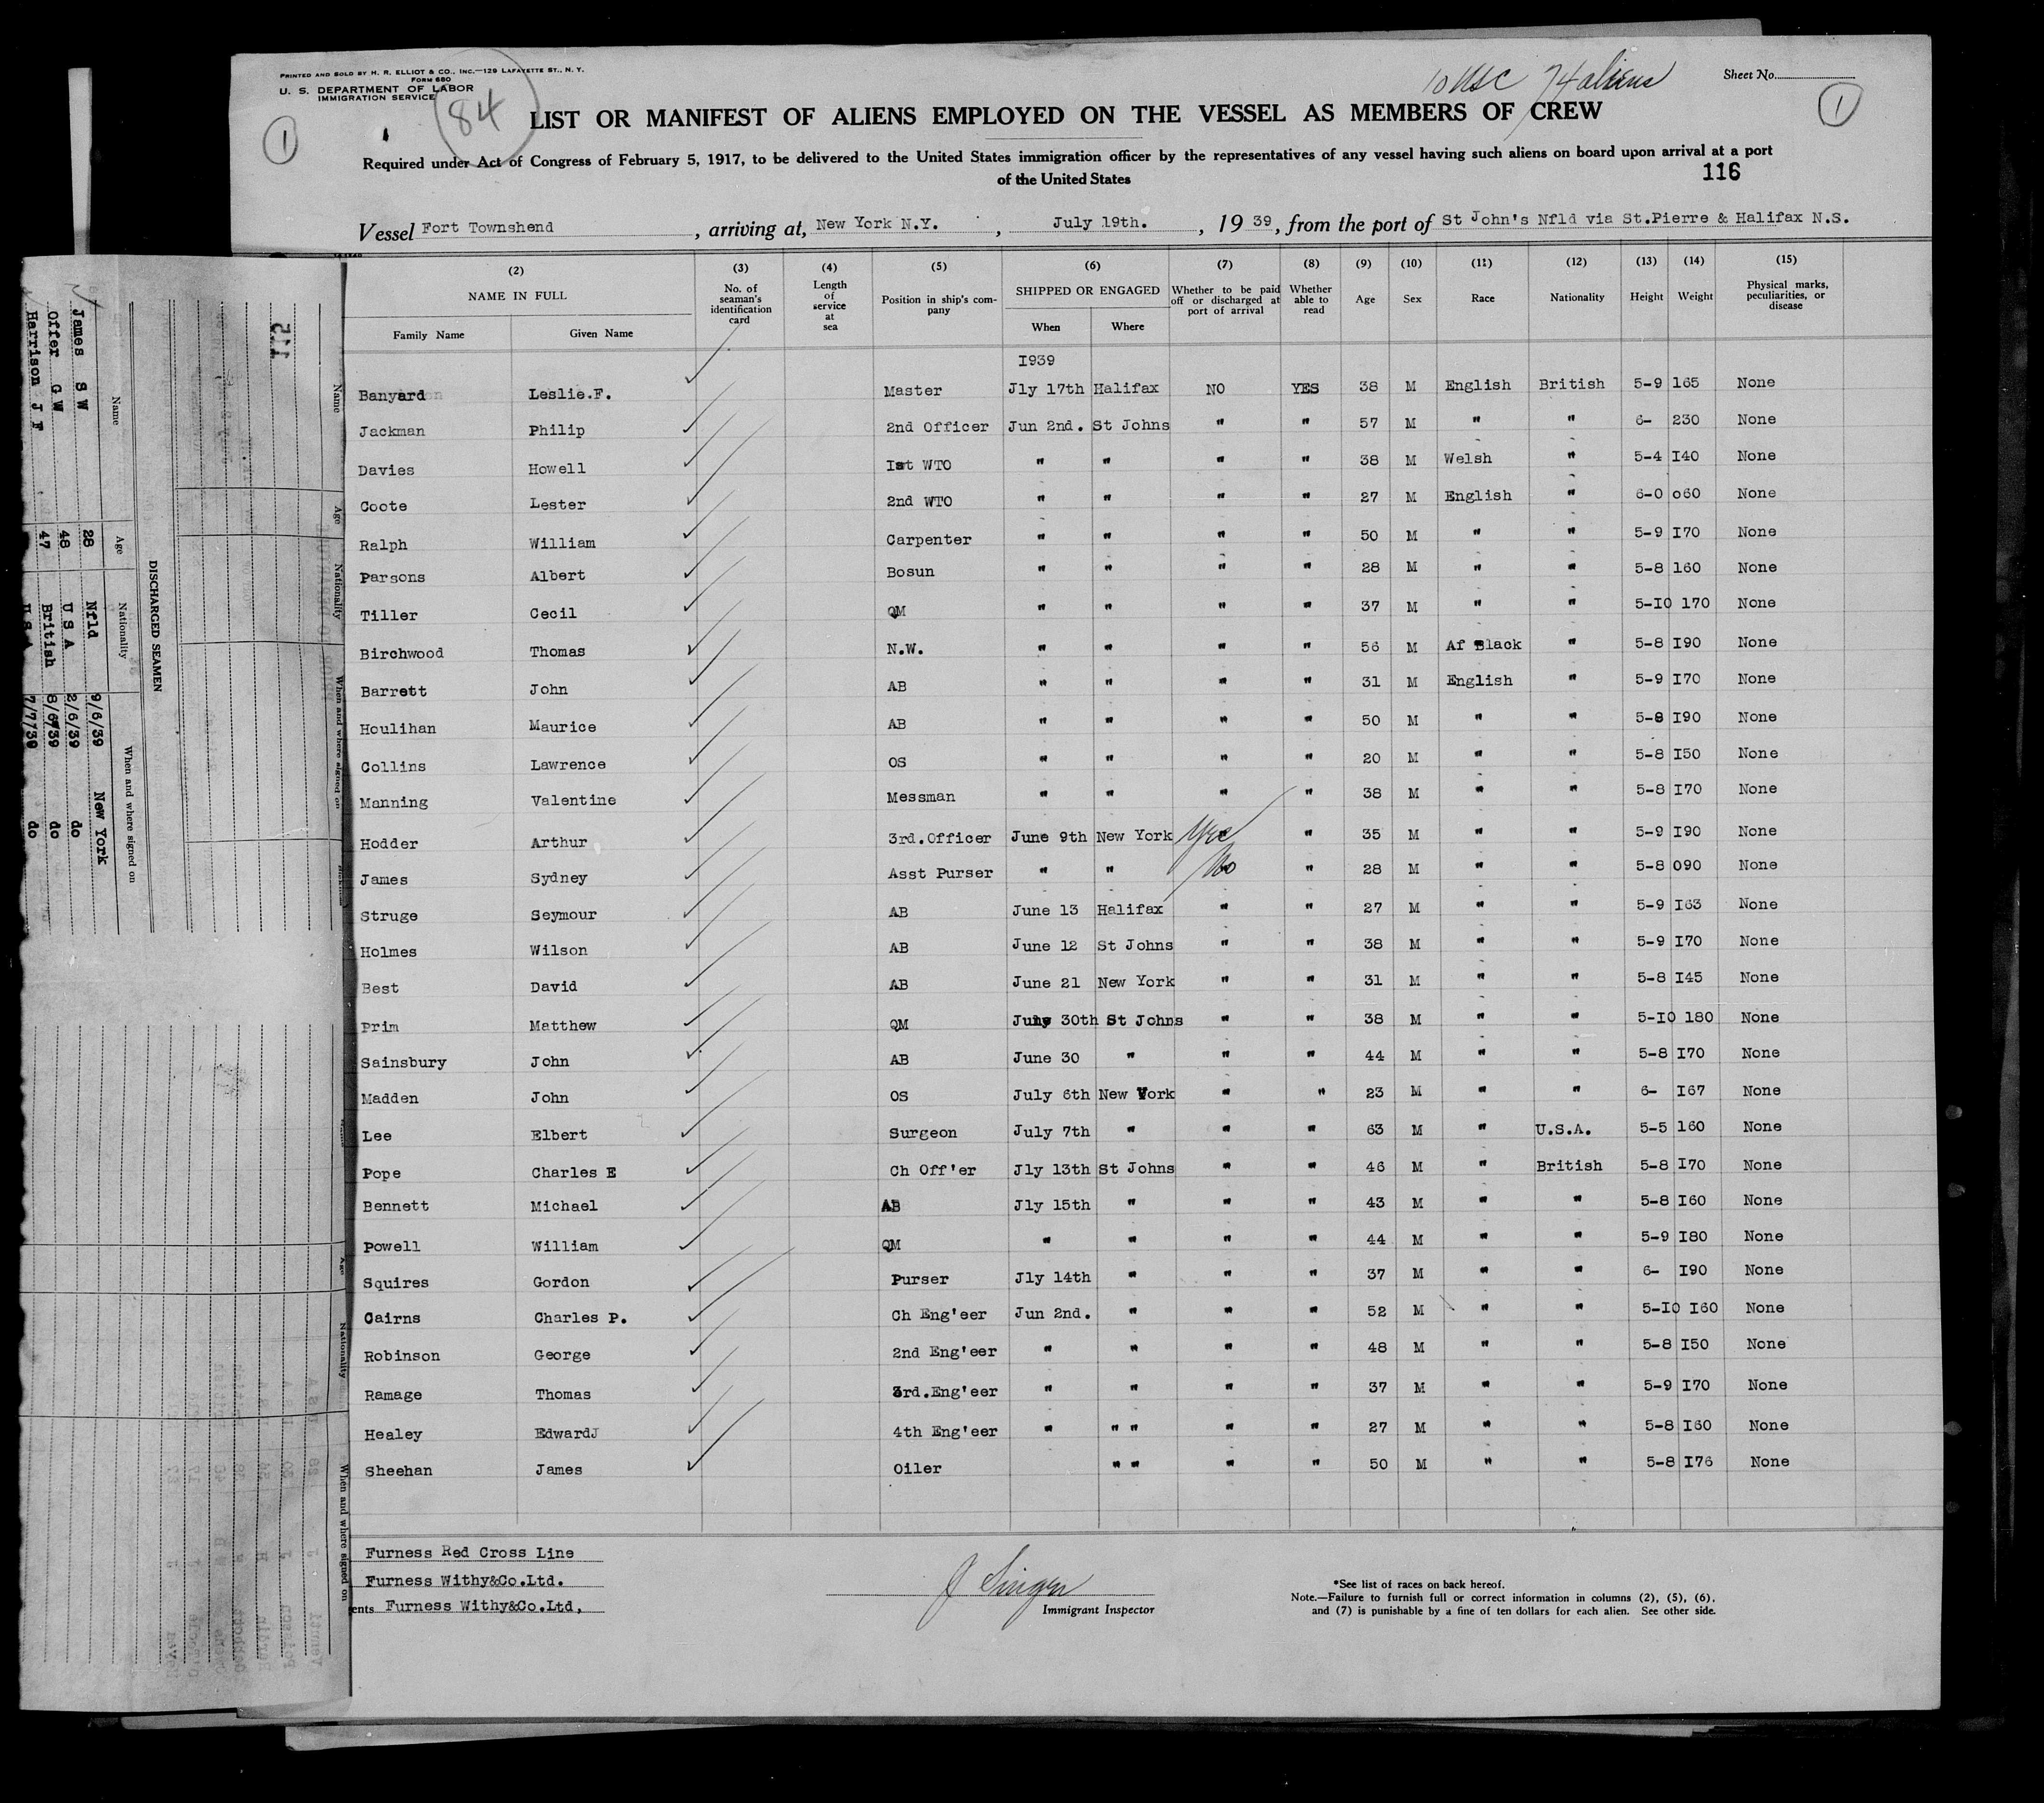 PRINTED AND SOLD BY H. R. ELLIOT & CO., INC.—129 LAFAYETTE ST., N. Y.
FORM 680
U. S. DEPARTMENT OF LABOR
IMMIGRATION SERVICE
84
1
10 USC 74 aliens
Sheet No.
1
LIST OR MANIFEST OF ALIENS EMPLOYED ON THE VESSEL AS MEMBERS OF CREW
Required under Act of Congress of February 5, 1917, to be delivered to the United States immigration officer by the representatives of any vessel having such aliens on board upon arrival at a port
of the United States
116
Vessel Fort Townshend, arriving at, New York N.Y., July 19th., 19 39, from the port of St John's Nfld via St.Pierre & Halifax N.S.
(2) (3) (4) (5) (6) (7) (8) (9) (10) (11) (12) (13) (14) (15)
NAME IN FULL No. of seaman's identification card Length of service at sea Position in ship's company SHIPPED OR ENGAGED Whether to be paid off or discharged at port of arrival Whether able to read Age Sex Race Nationality Height Weight Physical marks, peculiarities, or disease
Family Name Given Name When Where
1939
Banyard Leslie.F. Master Jly 17th Halifax NO YES 38 M English British 5-9 165 None
Jackman Philip 2nd Officer Jun 2nd. St Johns " " 57 M " " 6- 230 None
Davies Howell Ist WTO " " " " 38 M Welsh " 5-4 I40 None
Coote Lester 2nd WTO " " " " 27 M English " 6-0 o60 None
Ralph William Carpenter " " " " 50 M " " 5-9 I70 None
Parsons Albert Bosun " " " " 28 M " " 5-8 160 None
Tiller Cecil QM " " " " 37 M " " 5-10 170 None
Birchwood Thomas N.W. " " " " 56 M Af Black " 5-8 I90 None
Barrett John AB " " " " 31 M English " 5-9 I70 None
Houlihan Maurice AB " " " " 50 M " " 5-8 I90 None
Collins Lawrence OS " " " " 20 M " " 5-8 I50 None
Manning Valentine Messman " " " " 38 M " " 5-8 I70 None
Hodder Arthur 3rd.Officer June 9th New York Yes " 35 M " " 5-9 I90 None
James Sydney Asst Purser " " No " 28 M " " 5-8 090 None
Struge Seymour AB June 13 Halifax " " 27 M " " 5-9 I63 None
Holmes Wilson AB June 12 St Johns " " 38 M " " 5-9 I70 None
Best David AB June 21 New York " " 31 M " " 5-8 I45 None
Prim Matthew QM 30th St Johns " " 38 M " " 5-I0 180 None
Sainsbury John AB June 30 " " " 44 M " " 5-8 I70 None
Madden John OS July 6th New York " " 23 M " " 6- I67 None
Lee Elbert Surgeon July 7th " " " 63 M " U.S.A. 5-5 160 None
Pope Charles E Ch Off'er Jly 13th St Johns " " 46 M " British 5-8 I70 None
Bennett Michael AB Jly 15th " " " 43 M " " 5-8 I60 None
Powell William QM " " " " 44 M " " 5-9 I80 None
Squires Gordon Purser Jly 14th " " " 37 M " " 6- I90 None
Cairns Charles P. Ch Eng'eer Jun 2nd. " " " 52 M " " 5-I0 I60 None
Robinson George 2nd Eng'eer " " " " 48 M " " 5-8 I50 None
Ramage Thomas 3rd.Eng'eer " " " " 37 M " " 5-9 I70 None
Healey EdwardJ 4th Eng'eer " " " " " 27 M " " 5-8 I60 None
Sheehan James Oiler " " " " 50 M " " 5-8 I76 None
Furness Red Cross Line
Furness Withy&Co.Ltd.
ents Furness Withy&Co.Ltd,
J Singer
Immigrant Inspector
*See list of races on back hereof.
Note.—Failure to furnish full or correct information in columns (2), (5), (6),
and (7) is punishable by a fine of ten dollars for each alien. See other side.
112
DISCHARGED SEAMEN
Name Age Nationality When and where signed on
James S W 28 Nfld 9/6/39 New York
Offer G W 48 U S A 2/6/39 do
Harrison J F 47 British 8/6/39 do
U S A 7/7/39 do
Name Age Nationality When and where signed on
Age Nationality When and where signed on